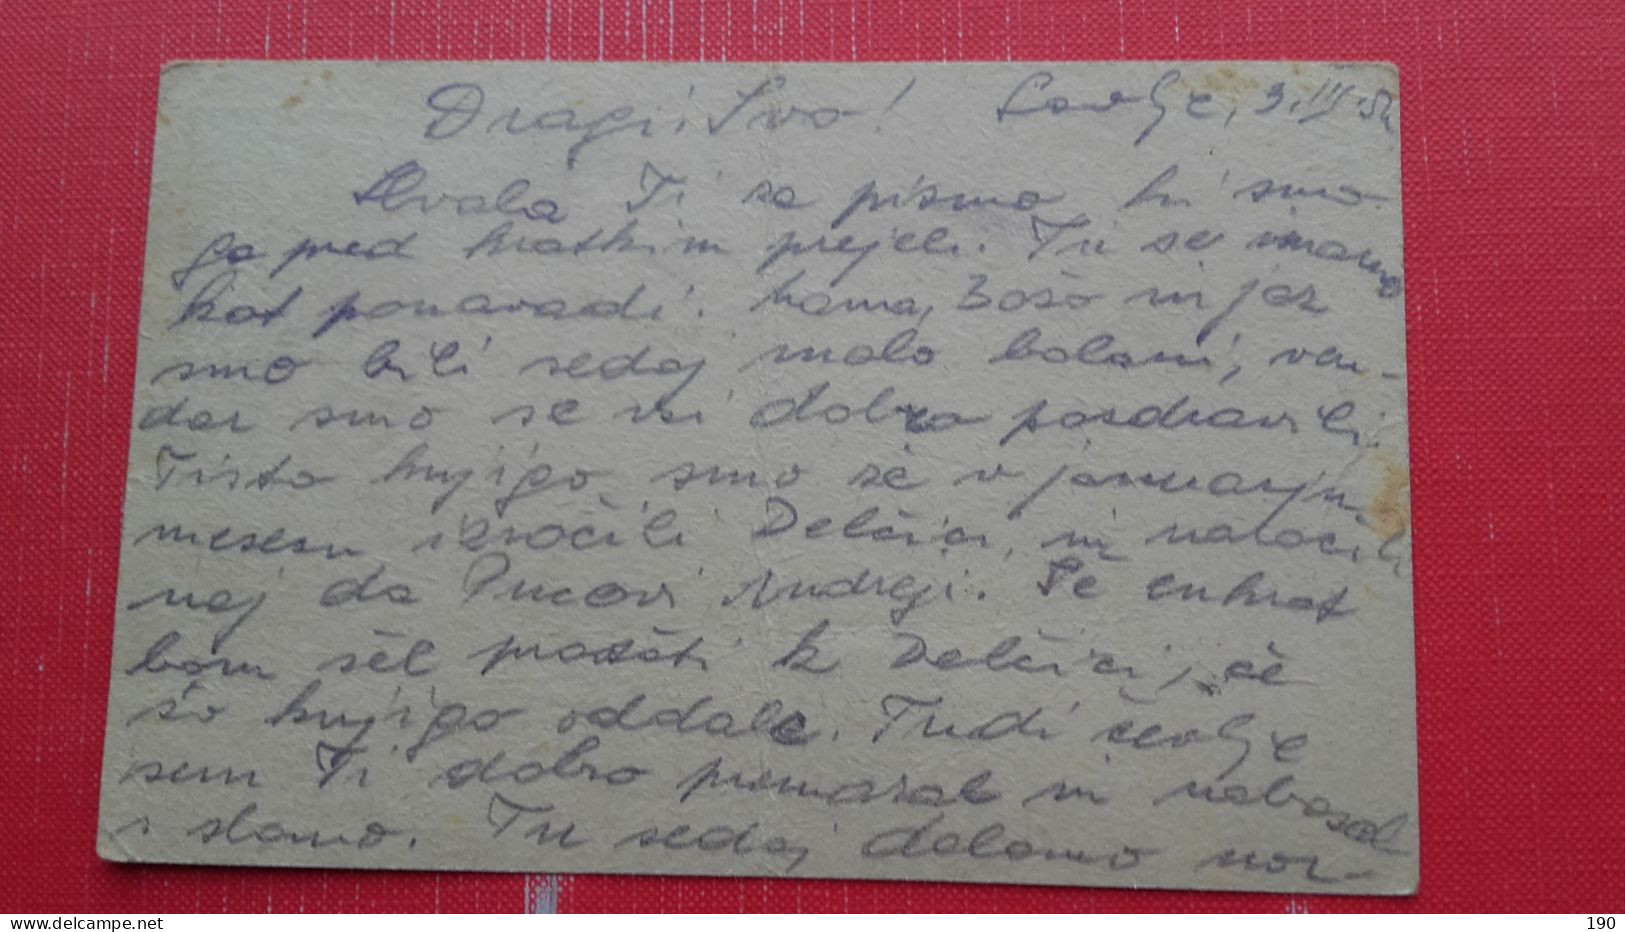 Dragi Ivo! Savlje, 3.III.52
Hvala Ti za pismo, ki smo
ga pred kratkim prejeli. Tu se imamo
kot ponavadi. Mama, Božo in jaz
smo bili sedaj malo bolani, ven-
dar smo se vsi dobro pozdravili.
Tisto knjigo smo že v januarju
mesecu izročili Delčici, in naročili
naj da Pucovi Andreji. Še enkrat
bom šel vprašati k Delčici, če
so knjigo oddale. Tudi čevlje
sem Ti dobro namazal in nabasal
s slamo. Tu sedaj delamo nor-
delcampe.net
190